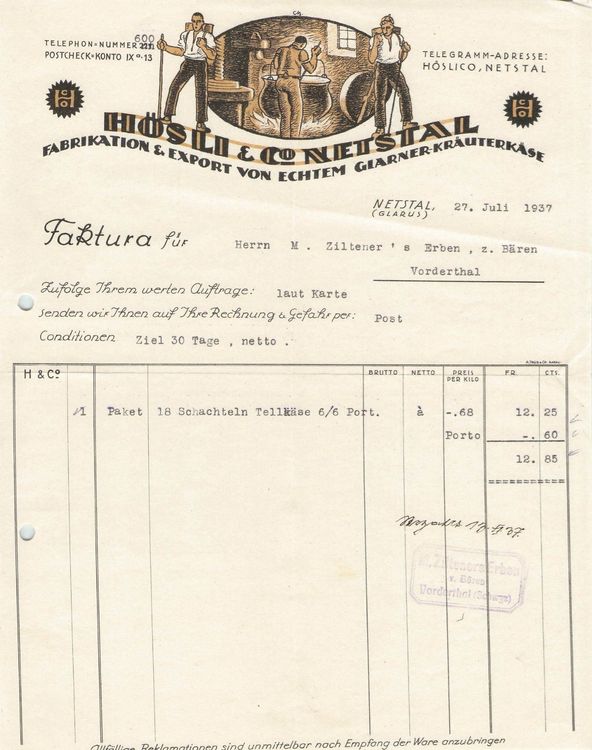 TELEPHON=NUMMER 600
POSTCHECK=KONTO IXa·13
TELEGRAMM-ADRESSE:
HÖSLICO, NETSTAL
HÖSLI & Co NETSTAL
FABRIKATION & EXPORT VON ECHTEM GLARNER-KRÄUTERKÄSE
NETSTAL, 27. Juli 1937
(GLARUS)
Faktura für Herrn M. Ziltener's Erben, z. Bären
Vorderthal
Zufolge Ihrem werten Auftrage: laut Karte
senden wir Ihnen auf Ihre Rechnung & Gefahr per: Post
Conditionen Ziel 30 Tage, netto.
H & Co BRUTTO NETTO PREIS PER KILO FR. CTS.
1 Paket 18 Schachteln Tellkäse 6/6 Port. à -.68 12. 25
Porto -. 60
12. 85
M. Zilteners Erben
z. Bären
Vorderthal (Schwyz)
Allfällige Reklamationen sind unmittelbar nach Empfang der Ware anzubringen